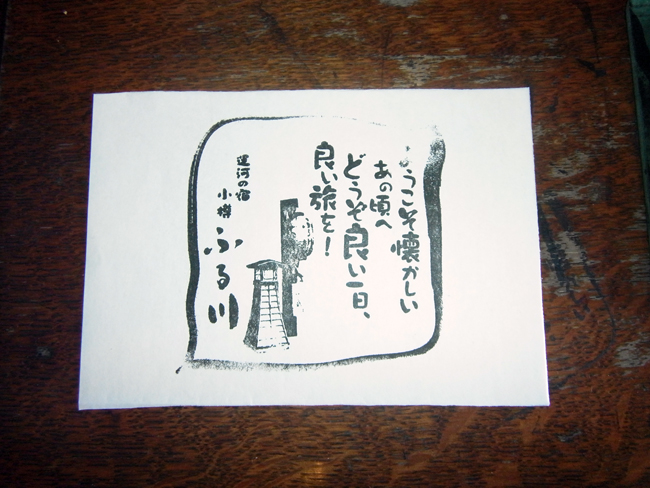 ようこそ懐かしい
あの頃へ
どうぞ良い一日、
良い旅を!
運河の宿
小樽
ふる川